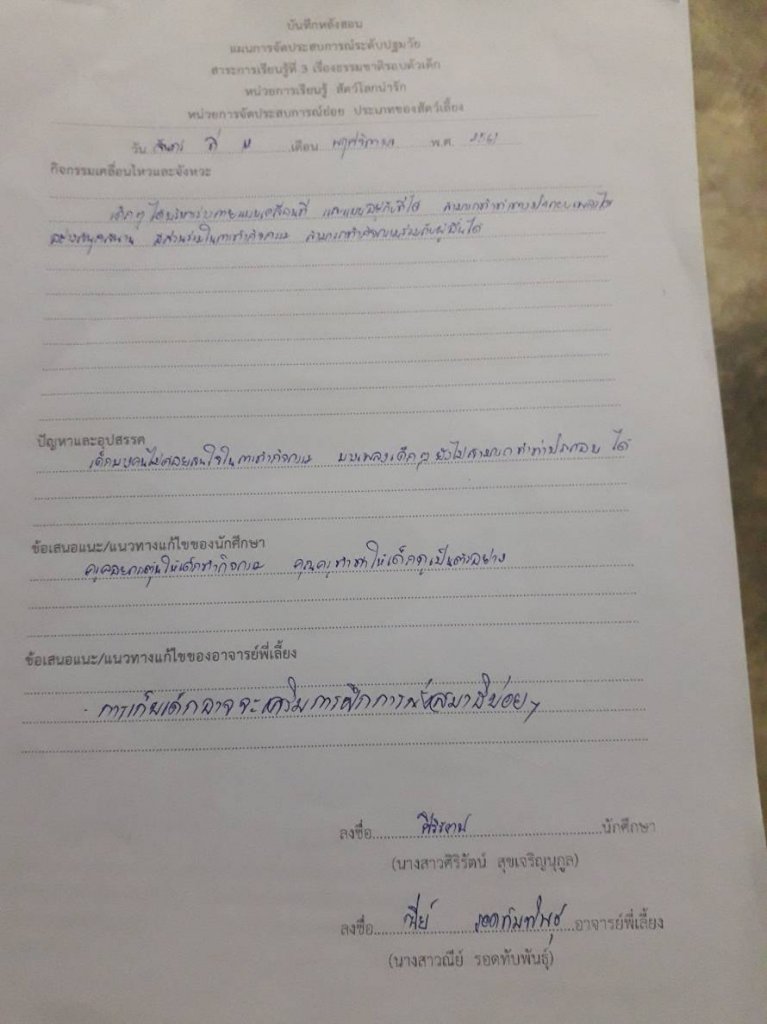 บันทึกหลังสอน
แผนการจัดประสบการณ์ระดับปฐมวัย
สาระการเรียนรู้ที่ 3 เรื่องธรรมชาติรอบตัวเด็ก
หน่วยการเรียนรู้ สัตว์โลกน่ารัก
หน่วยการจัดประสบการณ์ย่อย ประเภทของสัตว์เลี้ยง
วัน จันทร์ ที่ เดือน พฤศจิกายน พ.ศ. 2561
กิจกรรมเคลื่อนไหวและจังหวะ
เด็กๆ ได้บริหารร่างกายแบบเคลื่อนที่ และแบบอยู่กับที่ได้ สามารถทำท่าทางประกอบเพลงได้
อย่างสนุกสนาน มีส่วนร่วมในการทำกิจกรรม สามารถทำกิจกรรมร่วมกับผู้อื่นได้
ปัญหาและอุปสรรค
เด็กบางคนไม่ค่อยสนใจในการทำกิจกรรม บางเพลงเด็กๆ ยังไม่สามารถทำท่าประกอบ ได้
ข้อเสนอแนะ/แนวทางแก้ไขของนักศึกษา
ครูคอยกระตุ้นให้เด็กทำกิจกรรม คุณครูทำท่าให้เด็กดูเป็นตัวอย่าง
ข้อเสนอแนะ/แนวทางแก้ไขของอาจารย์พี่เลี้ยง
- การเก็บเด็กอาจจะเสริมการฝึกการสมาธิบ่อยๆ
ลงชื่อ ศิริรัตน์ นักศึกษา
(นางสาวศิริรัตน์ สุขเจริญนุกูล)
ลงชื่อ ณีย์ รอดทับพันธุ์ อาจารย์พี่เลี้ยง
(นางสาวณีย์ รอดทับพันธุ์)